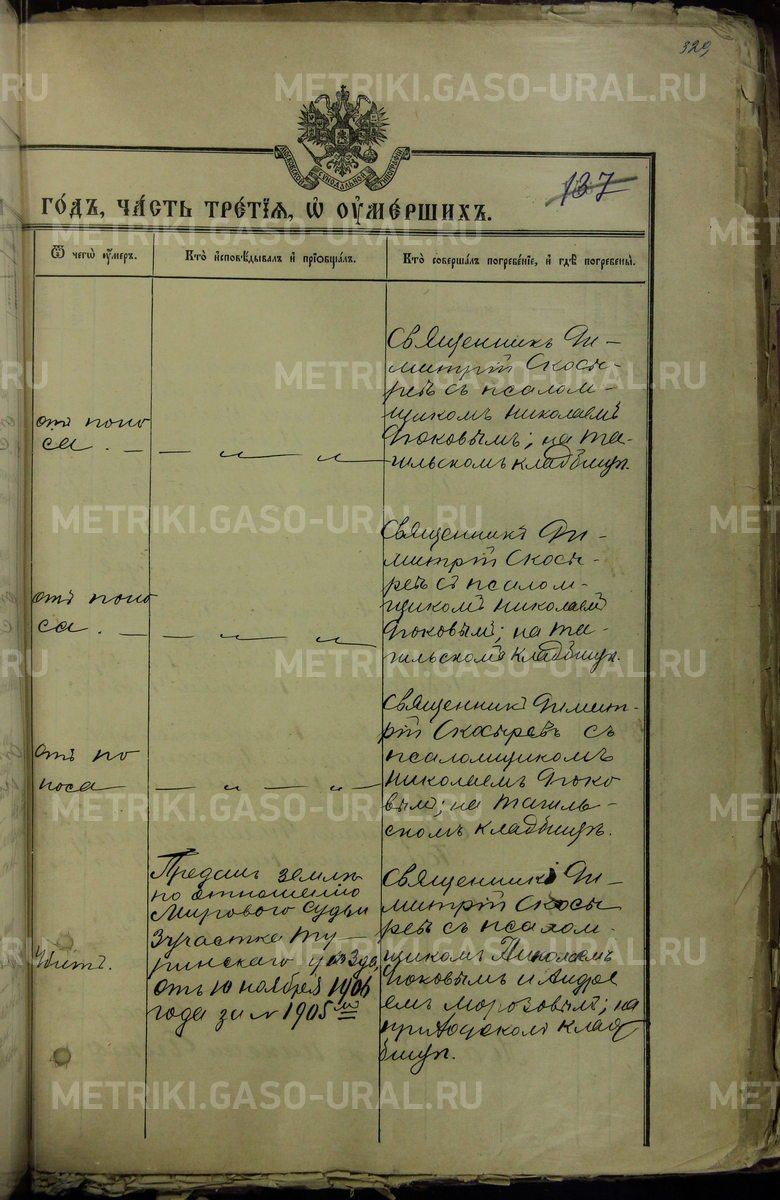 329
МОСКОВСКОЙ СѴНОДАЛЬНОЙ ТИПОГРАФІИ
137
ГОДЪ, ЧАСТЬ ТРЕТІЯ, Ѡ ОУМЕРШИХЪ.
Ѿ чегѡ оумеръ.
Кто исповѣдывалъ и пріобщалъ.
Кто совершалъ погребеніе, и гдѣ погребены.
отъ поно
са. — — „ „
Священникъ Ди-
митрій Скосы-
ревъ съ псалом-
щикомъ Николаемъ
Боковымъ; на Та-
гильскомъ кладбищѣ.
отъ поно
са. — — „ „
Священникъ Ди-
митрій Скосы-
ревъ съ псалом-
щикомъ Николаемъ
Боковымъ; на Та-
гильскомъ кладбищѣ.
отъ по
носа — „ — „ —
Священникъ Димит-
рій Скосыревъ съ
псаломщикомъ
Николаемъ Боко
вымъ; на Тагиль-
скомъ кладбищѣ.
Убитъ.
Преданъ землѣ
по отношенію
Мирового Судьи
3 участка Ту-
ринскаго уѣзда,
отъ 10 ноября 1906
года за № 1905
Священникъ Ди-
митрій Скосы
ревъ съ псалом-
щикомъ Николаемъ
Боковымъ и Андре
емъ Морозовымъ; на
приходскомъ клад
бищѣ.
METRIKI.GASO-URAL.RU